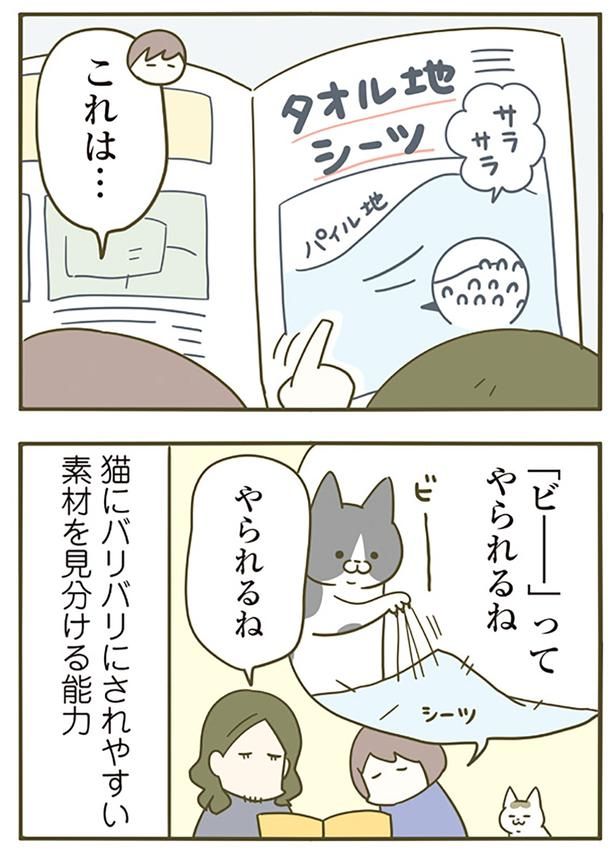 これは…
タオル地
シーツ
サラ
サラ
パイル地
「ビ――」って
やられるね
ビ――
シーツ
やられるね
猫にバリバリにされやすい
素材を見分ける能力